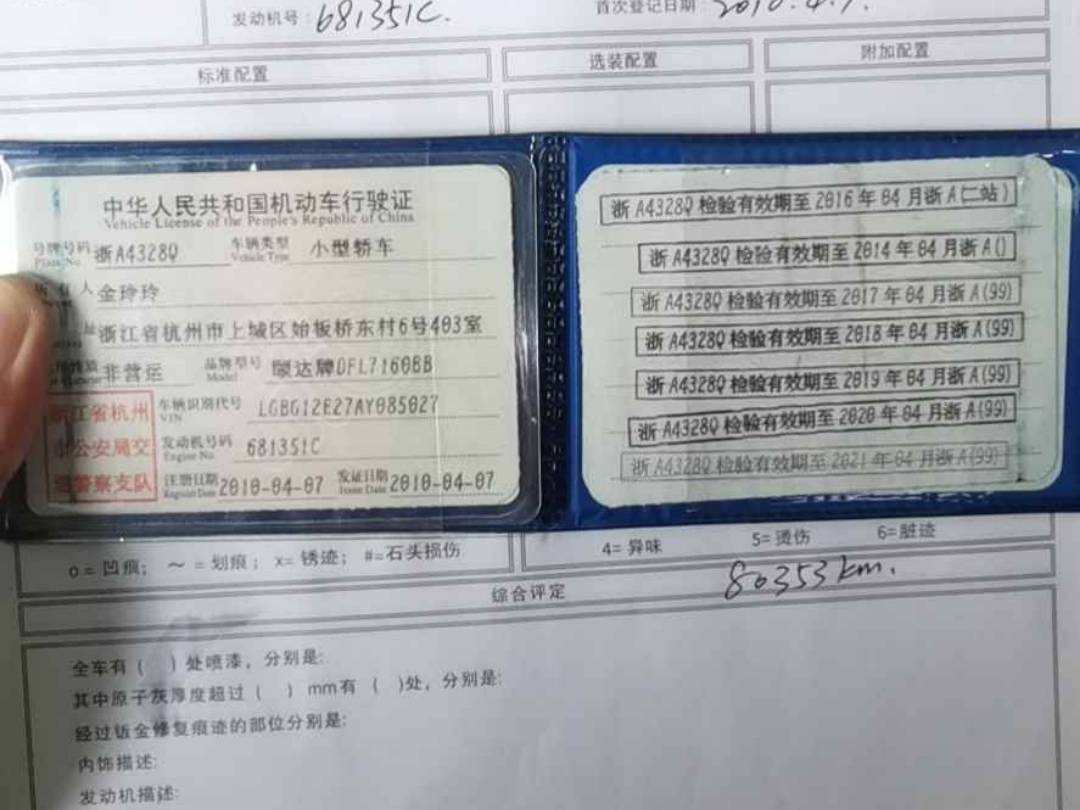 发动机号: 681351C.
首次登记日期: 2010.4.7.
标准配置
选装配置
附加配置
中华人民共和国机动车行驶证
Vehicle License of the People's Republic of China
号牌号码 浙A4328Q 车辆类型 小型轿车
Plate No. Vehicle Type
人 金玲玲
浙江省杭州市上城区始板桥东村6号403室
非营运 品牌型号 颐达牌DFL7160BB
Model
浙江省杭州
市公安局交
通警察支队
车辆识别代号 LGBG12E27AY085027
VIN
发动机号码 681351C
Engine No.
注册日期 2010-04-07 发证日期 2010-04-07
Register Date Issue Date
浙A4328Q 检验有效期至 2016 年 04 月浙 A(仁站)
浙 A4328Q 检验有效期至 2014 年 04 月浙 A()
浙 A4328Q 检验有效期至 2017 年 04 月浙 A(99)
浙 A4328Q 检验有效期至 2018 年 04 月浙 A(99)
浙 A4328Q 检验有效期至 2019 年 04 月浙 A(99)
浙 A4328Q 检验有效期至 2020 年 04 月浙 A(99)
浙 A4328Q 检验有效期至 2021 年 04 月浙 A(99)
o= 凹痕; ~ = 划痕; x= 锈迹; #=石头损伤
4= 异味 5= 烫伤 6= 脏迹
综合评定
80353km.
全车有 ( ) 处喷漆，分别是:
其中原子灰厚度超过 ( ) mm有 ( )处，分别是:
经过钣金修复痕迹的部位分别是:
内饰描述:
发动机描述: